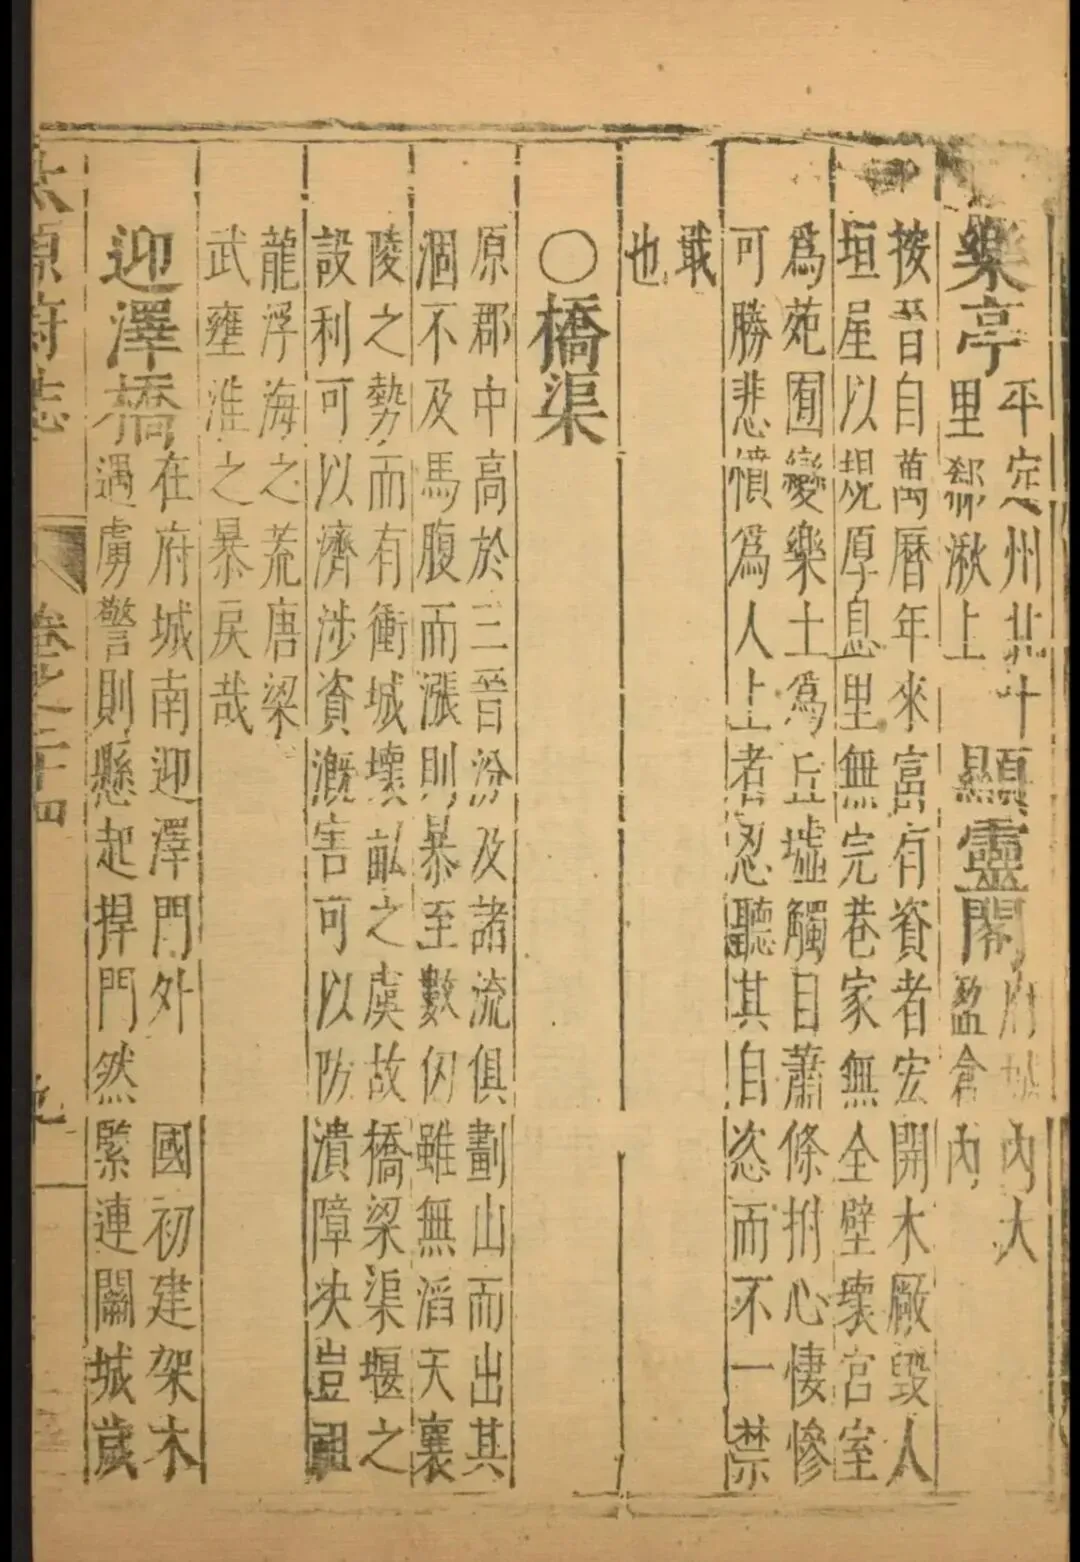 樂亭
平定州北十
里湫上
顯靈閣
府城內大
盈倉內
按晉自萬曆年來富有資者宏開木厰毀人
垣屋以規厚息里無完巷家無全壁壞宮室
爲苑囿變樂土爲丘墟觸目蕭條拊心悽慘
可勝悲憤爲人上者忍聽其自恣而不一禁
戢
也
○橋渠
原郡中高於三晉汾及諸流俱劃山而出其
涸不及馬腹而漲則暴至數仞雖無滔天襄
陵之勢而有衝城壞畝之虞故橋梁渠堰之
設利可以濟涉資溉害可以防潰障决豈祖
龍浮海之荒唐梁
武壅淮之暴戾哉
迎澤橋
在府城南迎澤門外 國初建架木
遇虜警則懸起捍門然緊連關城歲
太原府志 卷之二十四